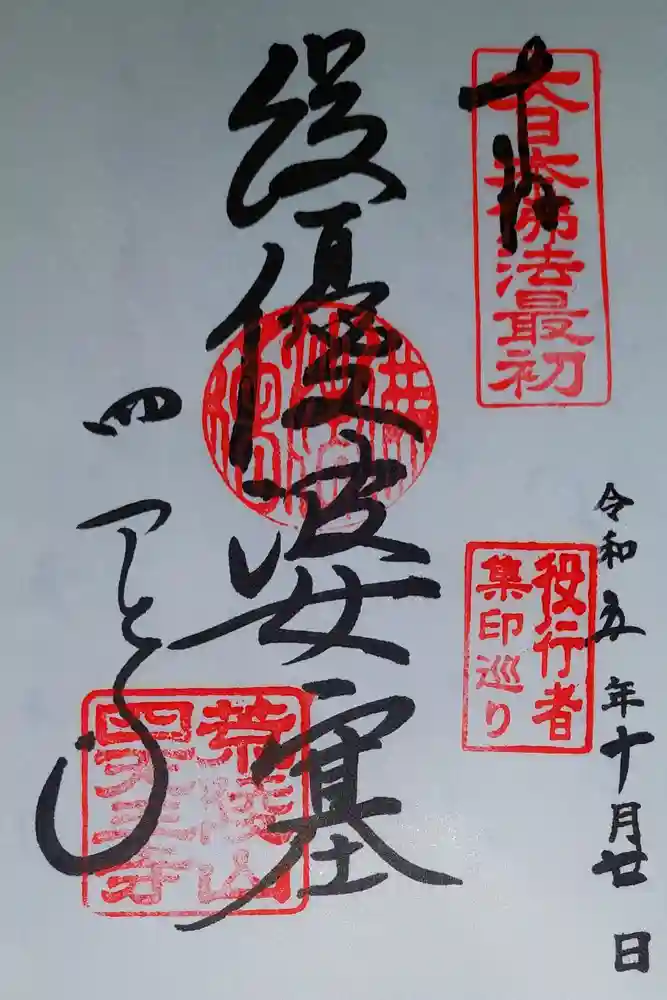 奉拝
大日本佛法最初
令和五年十月廿日
役行者
集印巡り
役優婆塞
荒陵山
四天王寺
四天王寺